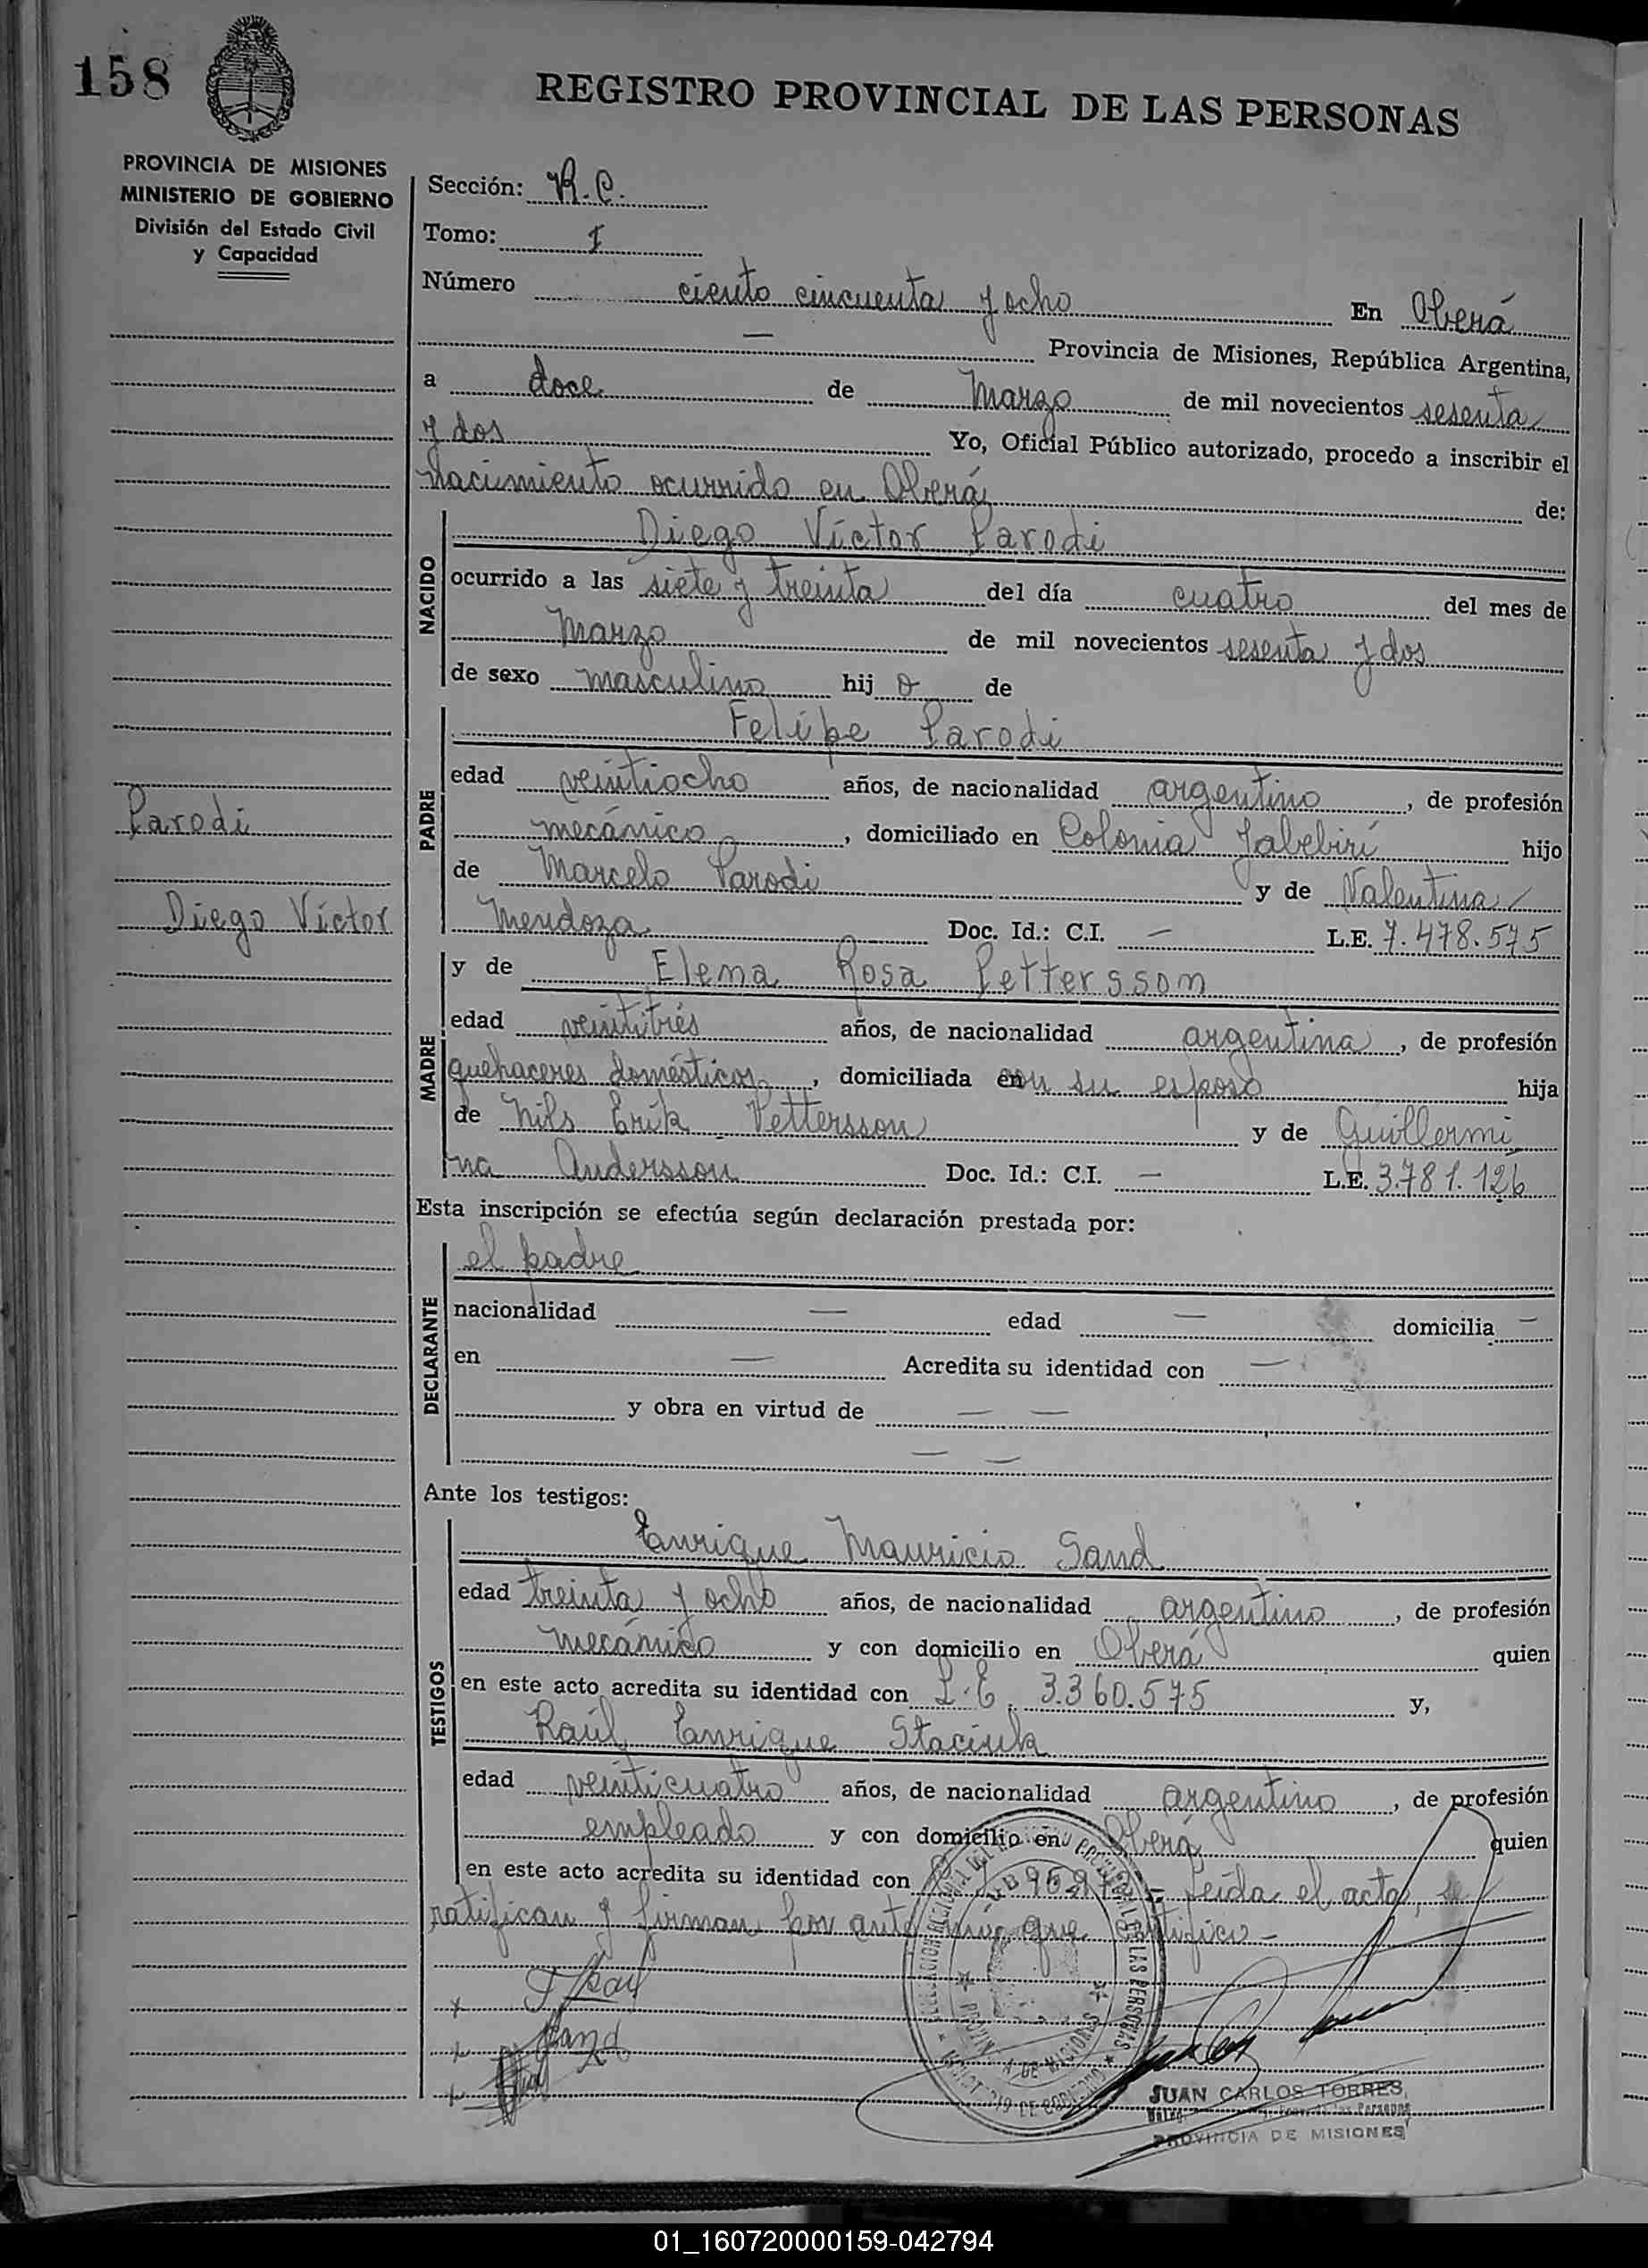 158
REGISTRO PROVINCIAL DE LAS PERSONAS
PROVINCIA DE MISIONES
MINISTERIO DE GOBIERNO
División del Estado Civil
y Capacidad
Sección: R.C.
Tomo: I
Número ciento cincuenta y ocho En Oberá
— Provincia de Misiones, República Argentina,
a doce de Marzo de mil novecientos sesenta
y dos Yo, Oficial Público autorizado, procedo a inscribir el
nacimiento ocurrido en Oberá de:
NACIDO
Diego Víctor Parodi
ocurrido a las siete y treinta del día cuatro del mes de
Marzo de mil novecientos sesenta y dos
de sexo masculino hij o de
PADRE
Felipe Parodi
edad veintiocho años, de nacionalidad argentino, de profesión
mecánico, domiciliado en Colonia Yabebirí hijo
de Marcelo Parodi y de Valentina
Mendoza Doc. Id.: C.I. — L.E. 7.478.575
Parodi
Diego Víctor
MADRE
y de Elena Rosa Pettersson
edad veintitrés años, de nacionalidad argentina, de profesión
quehaceres domésticos, domiciliada con su esposo hija
de Nils Erik Pettersson y de Guillermi
na Andersson Doc. Id.: C.I. — L.E. 3.781.126
Esta inscripción se efectúa según declaración prestada por:
DECLARANTE
el padre
nacionalidad — edad — domicilia —
en — Acredita su identidad con —
y obra en virtud de — —
— —
Ante los testigos:
TESTIGOS
Enrique Mauricio Sand
edad treinta y ocho años, de nacionalidad argentino, de profesión
mecánico y con domicilio en Oberá quien
en este acto acredita su identidad con L.E. 3.360.575 y,
Raúl Enrique Staciuk
edad veinticuatro años, de nacionalidad argentino, de profesión
empleado y con domicilio en Oberá quien
en este acto acredita su identidad con Leída el acta, se
ratifican y firman por ante mí, que certifico -
Sand
JUAN CARLOS TORRES
PROVINCIA DE MISIONES
01_160720000159-042794